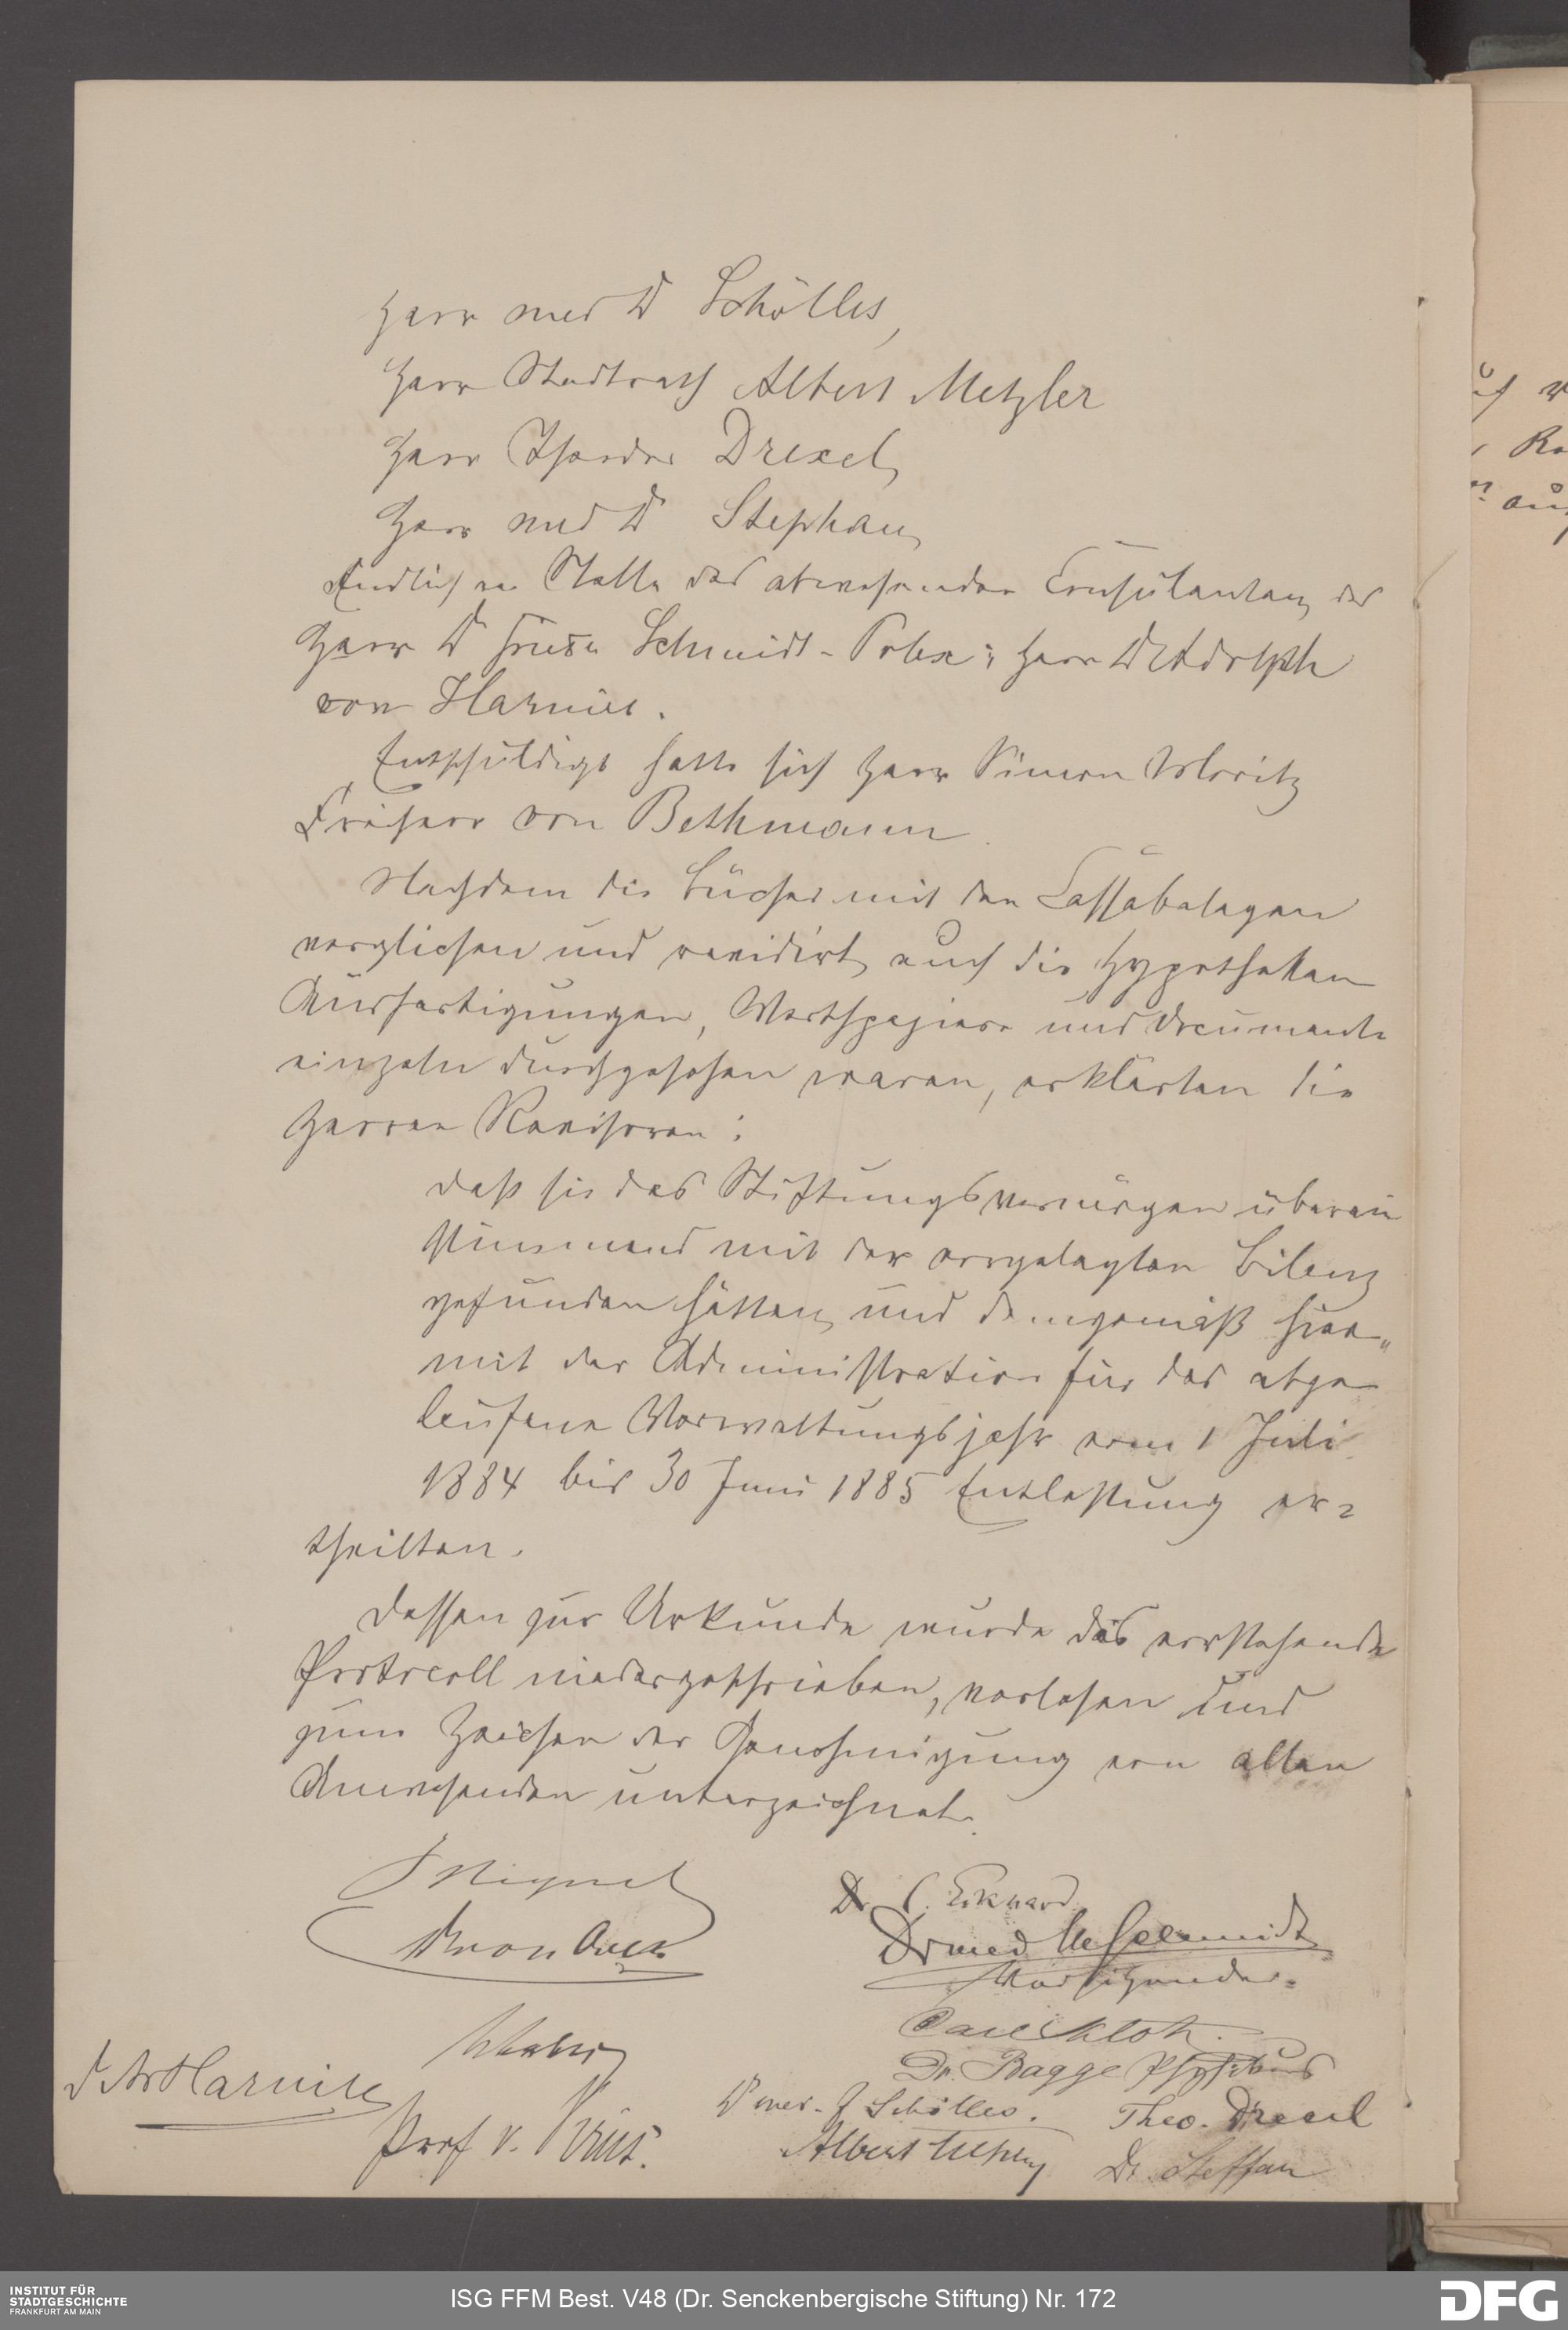 Herr med Dr Schölles,
Herr Stadtrath Albert Metzler
Herr Theodor Drexel,
Herr med Dr Stephan,
Endlich an Stelle des abwesenden Consulenten, des
Herrn Dr Schmidt-Polex: Herr Dr Adolph
von Harnier.
Entschuldigt hatte sich Herr Simon Moritz
Freiherr von Bethmann
Nachdem die Bücher mit den Cassabelegen
verglichen und revidirt, auch die Hypotheken
Ausfertigungen, Werthpapiere und Documente
einzeln durchgesehen waren, erklärten die
Herren Revisoren:
daß sie das Stiftungsvermögen überein
stimmend mit der vorgelegten Bilanz
gefunden hätten, und demgemäß hier„
mit der Administration für das abge
laufene Verwaltungsjahr vom 1 Juli
1884 bis 30 Juni 1885 Entlastung er=
theilten.
Dessen zur Urkunde wurde das vorstehende
Protocoll niedergeschrieben, verlesen und
zum Zeichen der Genehmigung von allen
Anwesenden unterzeichnet.
Miquel
Dr. Eckhard
Dr med Schmidt
Vorsitzender.
Carl Klotz.
Dr. Bagge Physikus
Dr A v Harnier
Dr med. J Schölles.
Theo. Drexel
Prof v.
Albert Metzler
Dr. Steffan
uf
Ro
auf
INSTITUT FÜR
STADTGESCHICHTE
FRANKFURT AM MAIN
ISG FFM Best. V48 (Dr. Senckenbergische Stiftung) Nr. 172
DFG